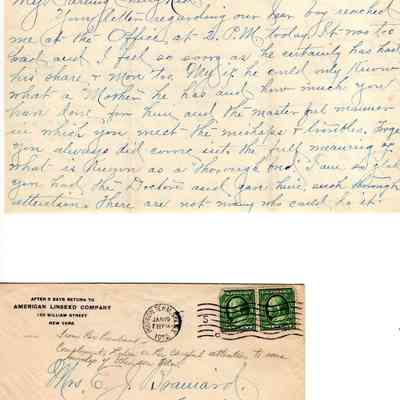 My Darling
Your letter regarding our dear boy reached
me at the Office at 2. P.M. today. It was too
bad and I feel so sorry as he certainly has had
his share & More Too. My if he could only Know
what a Mother he has and how much you
have done for him and the masterful manner
in which you meet the mishaps & troubles.
you always did come into the full meaning of
what is Known as a Thorough one. I am so glad
you had the Doctors and gave him such thorough
attention. There are not many who could do it.
AFTER 5 DAYS RETURN TO
AMERICAN LINSEED COMPANY
100 WILLIAM STREET
NEW YORK
HUDSON TERM. STA. N.Y.
JAN 19
7 PM
1912
5
C
from Her husband
Compliments to her on the careful attention to some
Mrs. E. J. Brainard